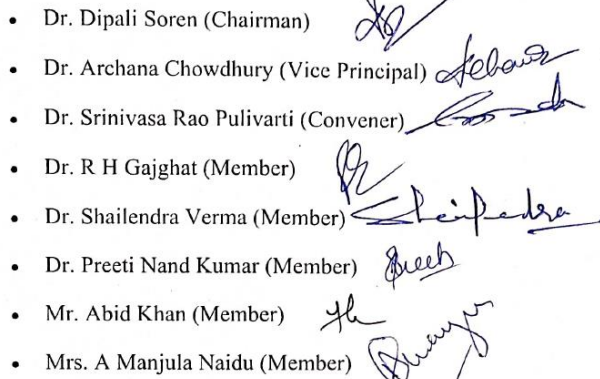 • Dr. Dipali Soren (Chairman)
• Dr. Archana Chowdhury (Vice Principal)
• Dr. Srinivasa Rao Pulivarti (Convener)
• Dr. R H Gajghat (Member)
• Dr. Shailendra Verma (Member) Shailendra
• Dr. Preeti Nand Kumar (Member)
• Mr. Abid Khan (Member)
• Mrs. A Manjula Naidu (Member)